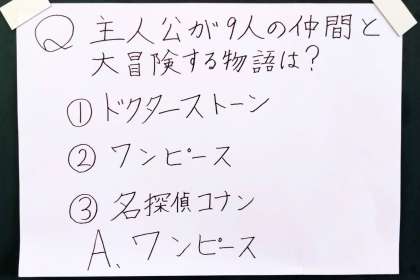 Q 主人公が9人の仲間と
大冒険する物語は?
① ドクターストーン
② ワンピース
③ 名探偵コナン
A、ワンピース